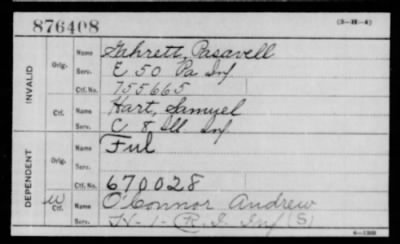 876408
(3-H-4)
INVALID
Orig.
Name Gahrett, Pasavell
Serv. E 50 Pa Inf
Ctf. No. 755665
Ctf.
Name Hart, Samuel
Serv. C 8 Ill Inf
DEPENDENT
Orig.
Name Ful
Serv.
Ctf. No. 670028
W Ctf.
Name O'Connor Andrew
Serv. H-1-R.I. Inf (S)
6-1380